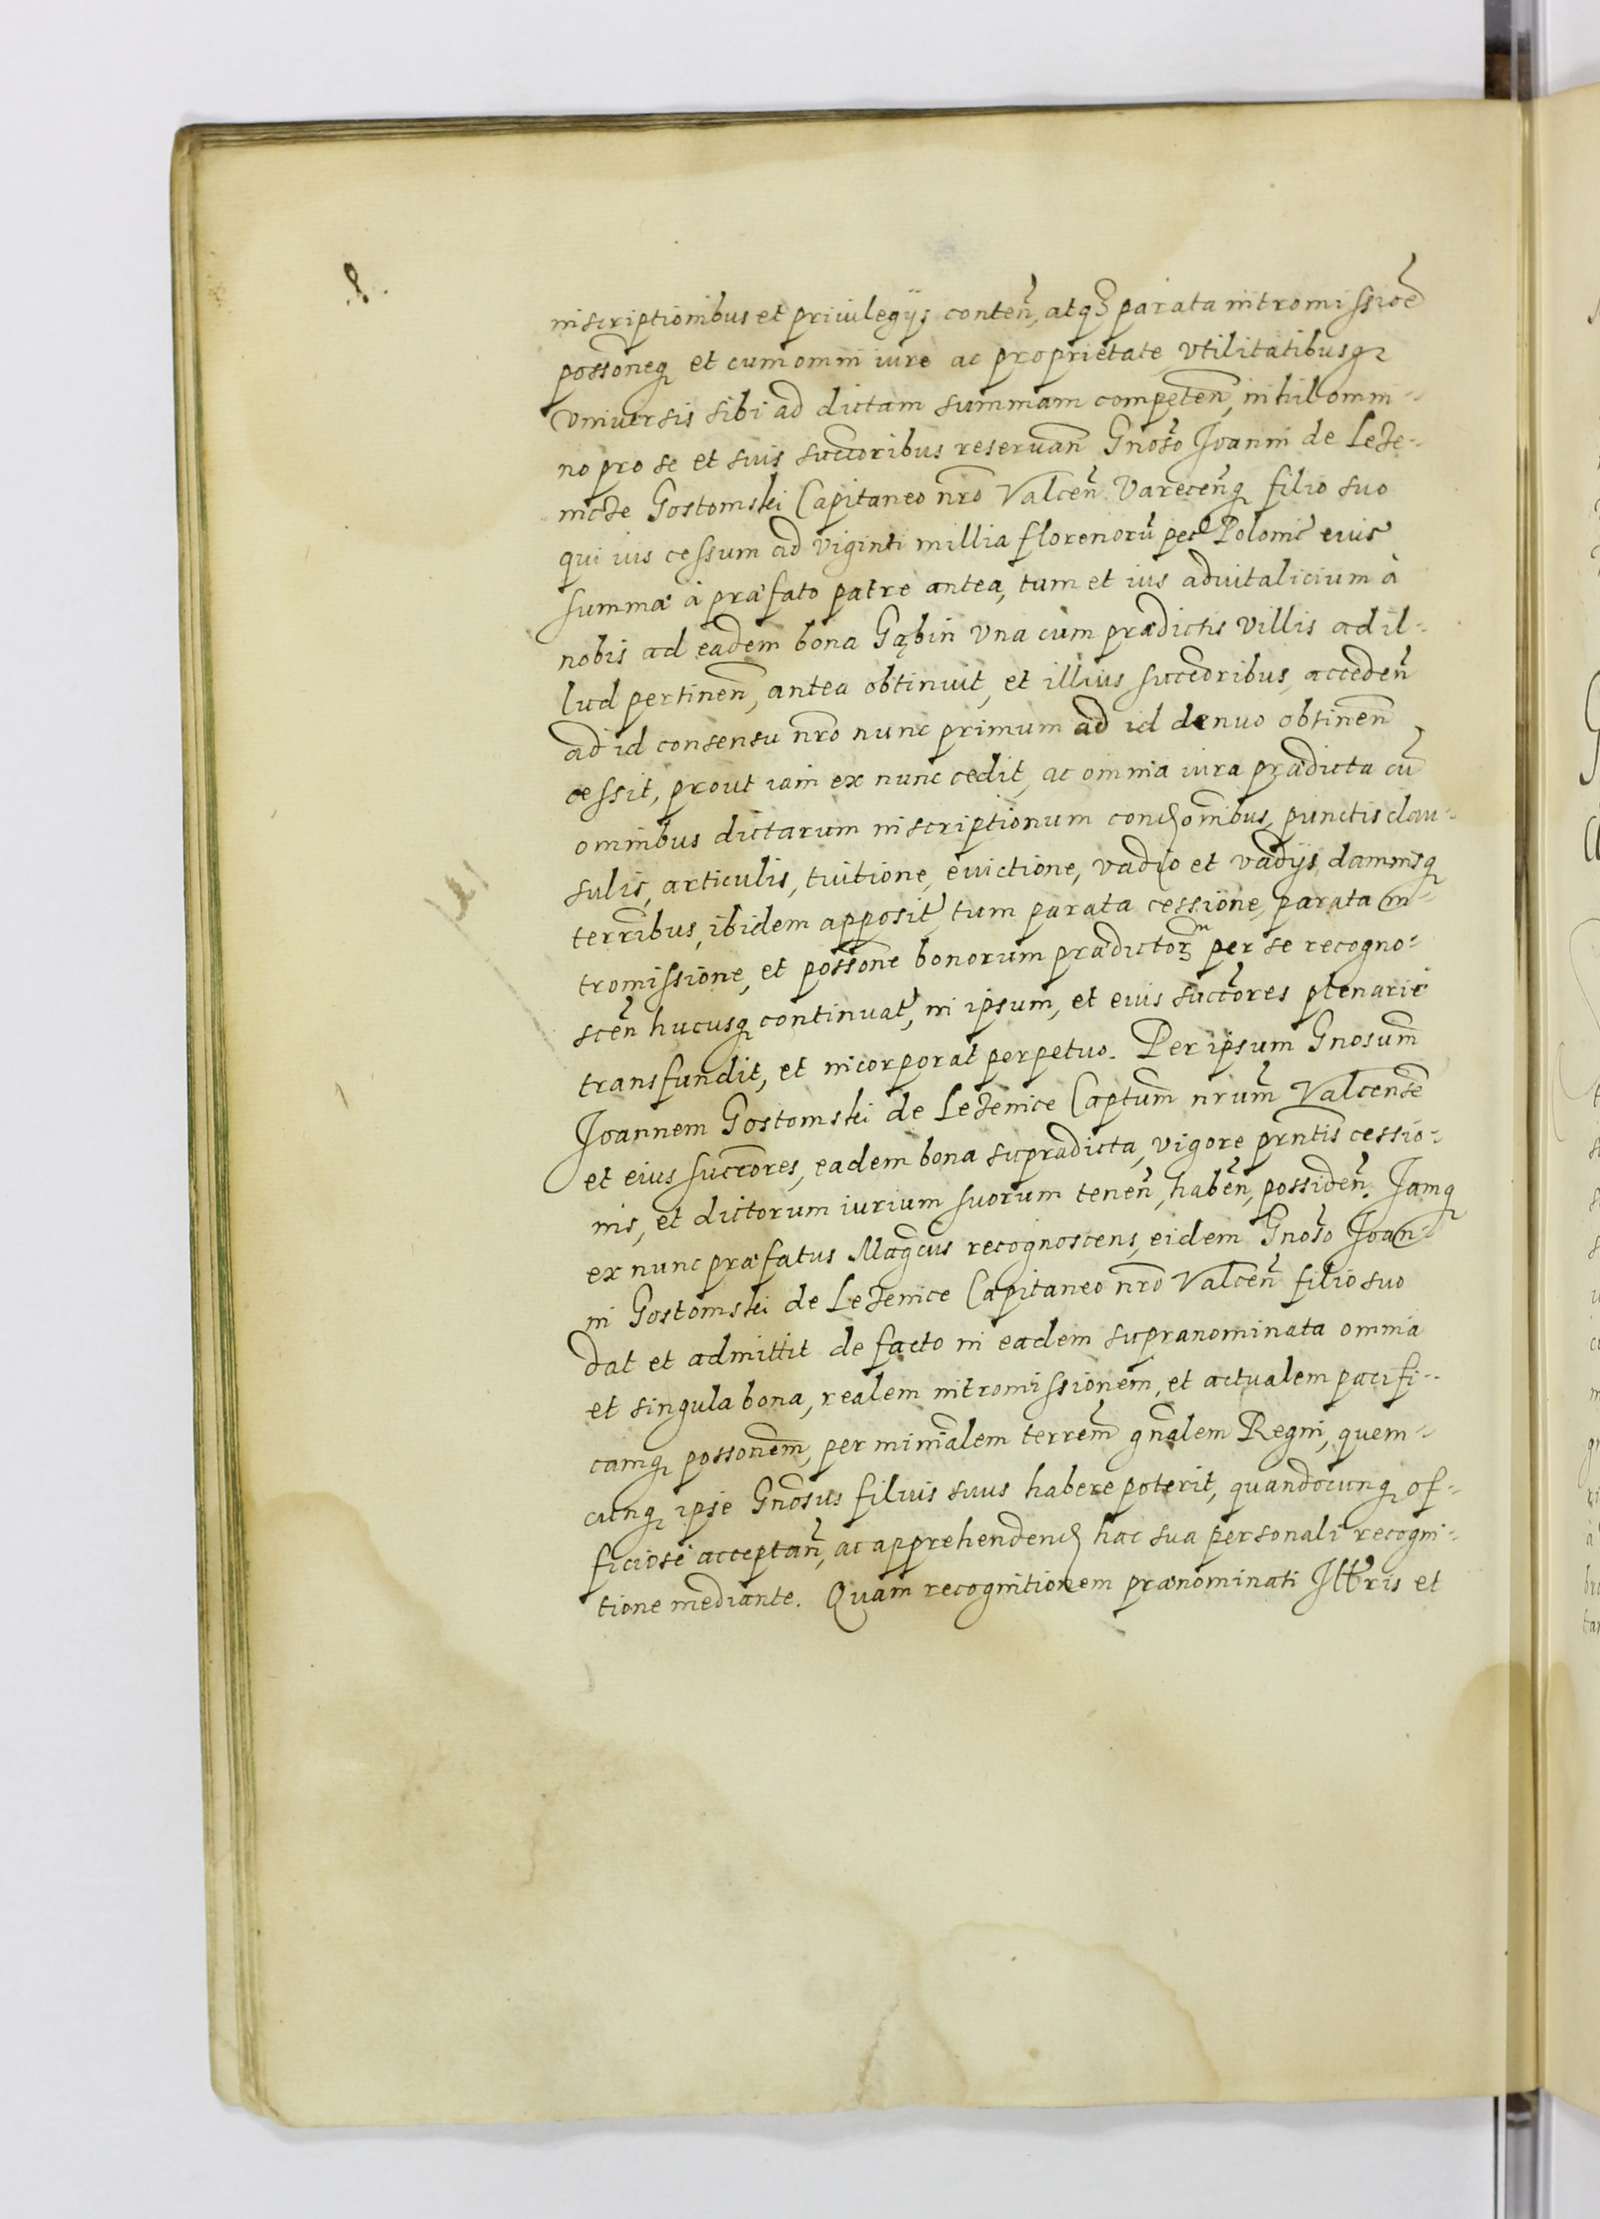 8.
inscriptionibus et priuilegijs conteñ, atq₃ parata intromissioẽ
possoneq₃ et cum omni iure ac proprietate, vtilitatibusq₃
vniuersis sibi ad dictam summam competeñ, nihil omni-
no pro se et suis succoribus reseruañ Gnoso Joanni de Leże-
nicze Gostomski Capitaneo nro Valceñ Vareceñq₃ filio suo
qui ius cessum ad viginti millia florenorũ pec Polonic eius
summæ à præfato patre antea, tum et ius aduitalicium à
nobis ad eadem bona Gąbin vna cum prædictis villis ad il-
lud pertineñ, antea obtinuit, et illius succoribus, accedeñ
ad id consensu nro nunc primum ad id denuo obtineñ
cessit, prout iam ex nunc cedit, ac omnia iura prædicta cũ
omnibus dictarum inscriptionum condomibus, punctis clau-
sulis, articulis, tuitione, euictione, vadio et vadijs, damnisq₃
terribus, ibidem apposit tum parata cessione, parata in-
tromissione, et possone bonorum prædictorum per se recogno-
sceñ hucusq₃ continuat, in ipsum, et eius succores plenarie
transfundit, et incorporat perpetuo. Per ipsum Gnosum
Joannem Gostomski de Leżenice Captum nrum Valcensẽ
et eius succores, eadem bona supradicta, vigore prntis cessio-
nis, et dictorum iurium suorum teneñ, habeñ, possideñ. Jamq₃
ex nunc præfatus Magcus recognoscens, eidem Gnoso Joan-
ni Gostomski de Leżenice Capitaneo nro Valceñ filio suo
dat et admittit de facto in eadem supranominata omnia
et singula bona, realem intromissionem, et actualem pacifi-
camq₃ possonem, per minialem terrem gnalem Regni, quem-
cunq₃ ipse Gnosus filius suus habere poterit, quandocunq₃ of-
ficiose acceptañ, ac apprehendend hac sua personali recogni-
tione mediante. Quam recognitionem prænominati Illtris et